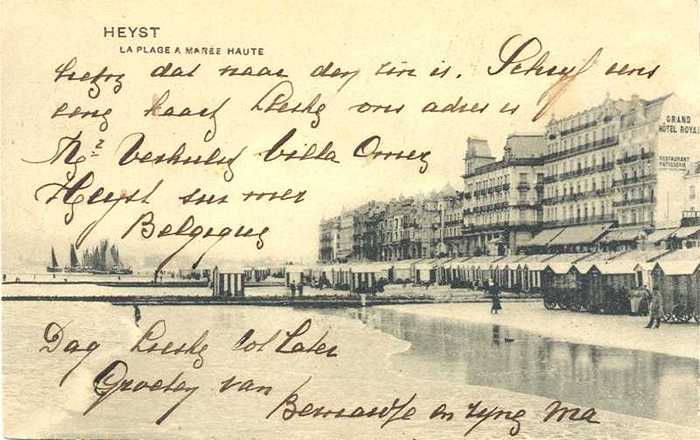 HEYST
LA PLAGE A MARÉE HAUTE
dat naar den zin is. Schryf eens
een kaart Lieske ons adres is
Mr Verhulst Villa
Heyst sur mer
Belgique
GRAND
HÔTEL ROYAL
RESTAURANT
PATISSERIE
Dag Lieske tot Later
Groeten van
en zyn Ma